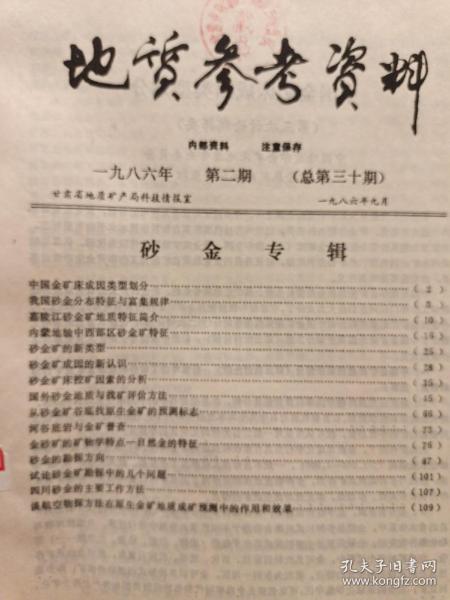 地质参考资料
内部资料 注意保存
一九八六年 第二期 (总第三十期)
甘肃省地质矿产局科技情报室 一九八六年九月
砂金专辑
中国金矿床成因类型划分 (2)
我国砂金分布特征与富集规律 (5)
嘉陵江砂金矿地质特征简介 (10)
内蒙地轴中西部区砂金矿特征 (15)
砂金矿的新类型 (25)
砂金矿成因的新认识 (28)
砂金矿床控矿因素的分析 (35)
国外砂金地质与找矿评价方法 (45)
从砂金矿谷底找原生金矿的预测标志 (66)
河谷底岩与金矿普查 (73)
金砂矿的矿物学特点—自然金的特征 (76)
砂金的勘探方向 (87)
试论砂金矿勘探中的几个问题 (101)
四川砂金的主要工作方法 (107)
谈航空物探方法在原生金矿地质成矿预测中的作用和效果 (109)
孔夫子旧书网
www.kongfz.com